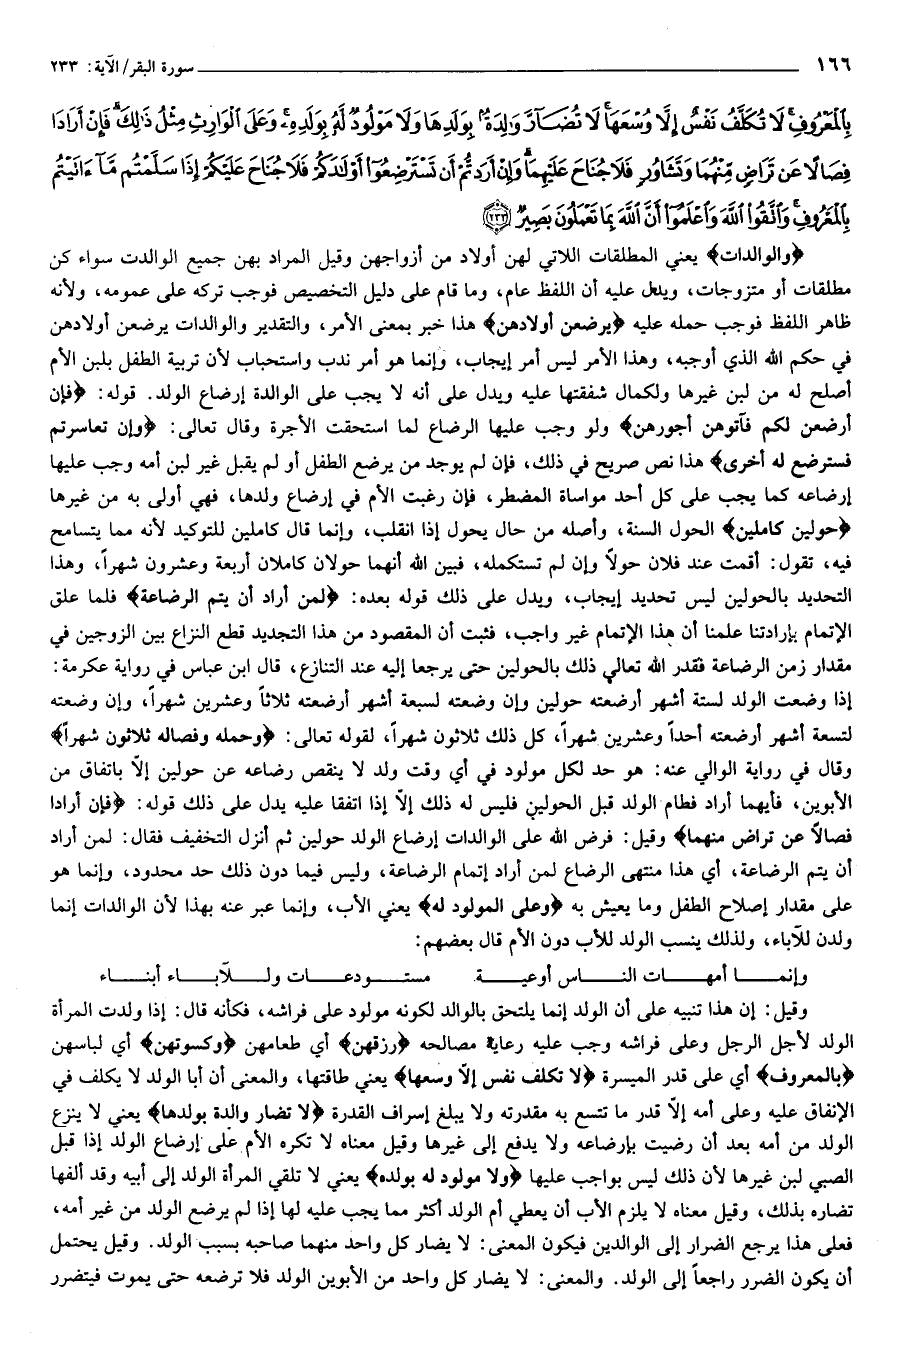 ١٦٦ سورة البقر/الآية: ٢٣٣
بِالْمَعْرُوفِ لَا تُكَلَّفُ نَفْسٌ إِلَّا وُسْعَهَا لَا تُضَارَّ وَالِدَةٌ بِوَلَدِهَا وَلَا مَوْلُودٌ لَّهُ بِوَلَدِهِ وَعَلَى الْوَارِثِ مِثْلُ ذَٰلِكَ فَإِنْ أَرَادَا
فِصَالًا عَن تَرَاضٍ مِّنْهُمَا وَتَشَاوُرٍ فَلَا جُنَاحَ عَلَيْهِمَا وَإِنْ أَرَدتُّمْ أَن تَسْتَرْضِعُوا أَوْلَادَكُمْ فَلَا جُنَاحَ عَلَيْكُمْ إِذَا سَلَّمْتُم مَّا ءَاتَيْتُم
بِالْمَعْرُوفِ وَاتَّقُوا اللَّهَ وَاعْلَمُوا أَنَّ اللَّهَ بِمَا تَعْمَلُونَ بَصِيرٌ ﴿٢٣٣﴾
﴿والوالدات﴾ يعني المطلقات اللاتي لهن أولاد من أزواجهن وقيل المراد بهن جميع الوالدت سواء كن
مطلقات أو متزوجات، ويدل عليه أن اللفظ عام، وما قام على دليل التخصيص فوجب تركه على عمومه، ولأنه
ظاهر اللفظ فوجب حمله عليه ﴿يرضعن أولادهن﴾ هذا خبر بمعنى الأمر، والتقدير والوالدات يرضعن أولادهن
في حكم الله الذي أوجبه، وهذا الأمر ليس أمر إيجاب، وإنما هو أمر ندب واستحباب لأن تربية الطفل بلبن الأم
أصلح له من لبن غيرها ولكمال شفقتها عليه ويدل على أنه لا يجب على الوالدة إرضاع الولد. قوله: ﴿فإن
أرضعن لكم فآتوهن أجورهن﴾ ولو وجب عليها الرضاع لما استحقت الأجرة وقال تعالى: ﴿وإن تعاسرتم
فسترضع له أخرى﴾ هذا نص صريح في ذلك، فإن لم يوجد من يرضع الطفل أو لم يقبل غير لبن أمه وجب عليها
إرضاعه كما يجب على كل أحد مواساة المضطر، فإن رغبت الأم في إرضاع ولدها، فهي أولى به من غيرها
﴿حولين كاملين﴾ الحول السنة، وأصله من حال يحول إذا انقلب، وإنما قال كاملين للتوكيد لأنه مما يتسامح
فيه، تقول: أقمت عند فلان حولاً وإن لم تستكمله، فبين الله أنهما حولان كاملان أربعة وعشرون شهراً، وهذا
التحديد بالحولين ليس تحديد إيجاب، ويدل على ذلك قوله بعده: ﴿لمن أراد أن يتم الرضاعة﴾ فلما علق
الإتمام بإرادتنا علمنا أن هذا الإتمام غير واجب، فثبت أن المقصود من هذا التجديد قطع النزاع بين الزوجين في
مقدار زمن الرضاعة فقدر الله تعالى ذلك بالحولين حتى يرجعا إليه عند التنازع، قال ابن عباس في رواية عكرمة:
إذا وضعت الولد لستة أشهر أرضعته حولين وإن وضعته لسبعة أشهر أرضعته ثلاثاً وعشرين شهراً، وإن وضعته
لتسعة أشهر أرضعته أحداً وعشرين شهراً، كل ذلك ثلاثون شهراً، لقوله تعالى: ﴿وحمله وفصاله ثلاثون شهراً﴾
وقال في رواية الوالي عنه: هو حد لكل مولود في أي وقت ولد لا ينقص رضاعه عن حولين إلاّ باتفاق من
الأبوين، فأيهما أراد فطام الولد قبل الحولين فليس له ذلك إلاّ إذا اتفقا عليه يدل على ذلك قوله: ﴿فإن أرادا
فصالاً عن تراض منهما﴾ وقيل: فرض الله على الوالدات إرضاع الولد حولين ثم أنزل التخفيف فقال: لمن أراد
أن يتم الرضاعة، أي هذا منتهى الرضاع لمن أراد إتمام الرضاعة، وليس فيما دون ذلك حد محدود، وإنما هو
على مقدار إصلاح الطفل وما يعيش به ﴿وعلى المولود له﴾ يعني الأب، وإنما عبر عنه بهذا لأن الوالدات إنما
ولدن للآباء، ولذلك ينسب الولد للأب دون الأم قال بعضهم:
وإنمـــا أمهـــات النـــاس أوعيـــة مستـــودعـــات ولـــلآبـــاء أبنـــاء
وقيل: إن هذا تنبيه على أن الولد إنما يلتحق بالوالد لكونه مولود على فراشه، فكأنه قال: إذا ولدت المرأة
الولد لأجل الرجل وعلى فراشه وجب عليه رعاية مصالحه ﴿رزقهن﴾ أي طعامهن ﴿وكسوتهن﴾ أي لباسهن
﴿بالمعروف﴾ أي على قدر الميسرة ﴿لا تكلف نفس إلاّ وسعها﴾ يعني طاقتها، والمعنى أن أبا الولد لا يكلف في
الإنفاق عليه وعلى أمه إلاّ قدر ما تتسع به مقدرته ولا يبلغ إسراف القدرة ﴿لا تضار والدة بولدها﴾ يعني لا ينزع
الولد من أمه بعد أن رضيت بإرضاعه ولا يدفع إلى غيرها وقيل معناه لا تكره الأم على إرضاع الولد إذا قبل
الصبي لبن غيرها لأن ذلك ليس بواجب عليها ﴿ولا مولود له بولده﴾ يعني لا تلقي المرأة الولد إلى أبيه وقد ألفها
تضاره بذلك، وقيل معناه لا يلزم الأب أن يعطي أم الولد أكثر مما يجب عليه لها إذا لم يرضع الولد من غير أمه،
فعلى هذا يرجع الضرار إلى الوالدين فيكون المعنى: لا يضار كل واحد منهما صاحبه بسبب الولد. وقيل يحتمل
أن يكون الضرر راجعاً إلى الولد. والمعنى: لا يضار كل واحد من الأبوين الولد فلا ترضعه حتى يموت فيتضرر